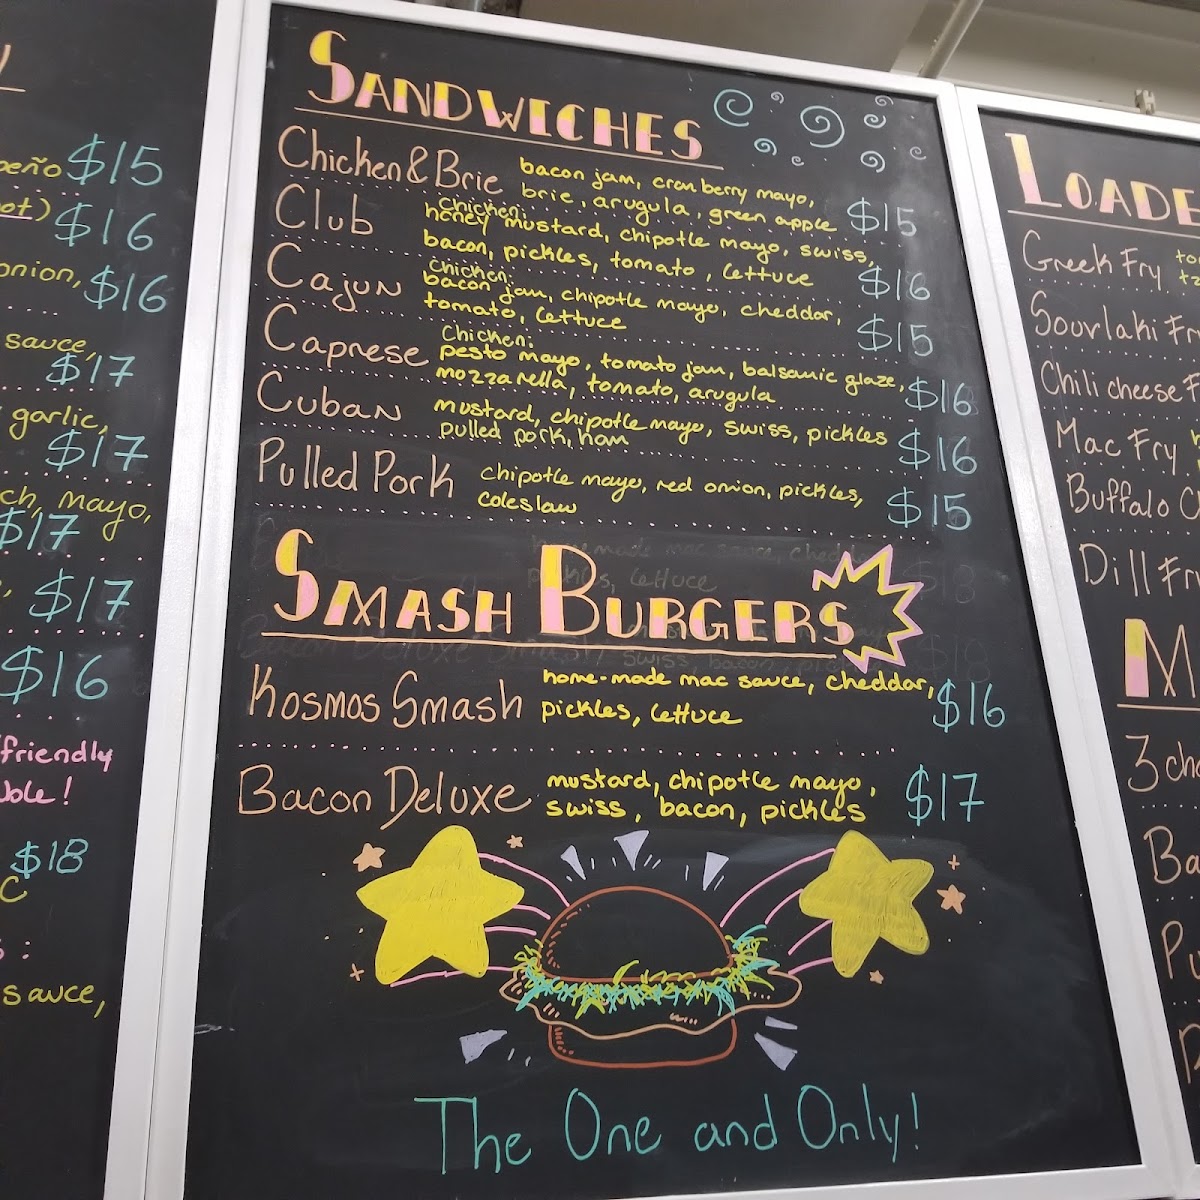 peño $15
ot) $16
onion, $16
sauce,
$17
garlic,
$17
ch, mayo,
$17
$17
$16
friendly
$18
C
:
sauce,
SANDWICHES
Chicken & Brie bacon jam, cranberry mayo,
brie, arugula, green apple $15
Club Chicken:
honey mustard, chipotle mayo, swiss,
bacon, pickles, tomato, lettuce $16
Cajun Chicken:
bacon jam, chipotle mayo, cheddar,
tomato, lettuce $15
Caprese Chicken:
pesto mayo, tomato jam, balsamic glaze,
mozzarella, tomato, arugula $16
Cuban mustard, chipotle mayo, swiss, pickles
pulled pork, ham $16
Pulled Pork chipotle mayo, red onion, pickles,
coleslaw $15
SMASH BURGERS
Kosmos Smash home-made mac sauce, cheddar,
pickles, lettuce $16
Bacon Deluxe mustard, chipotle mayo,
swiss, bacon, pickles $17
The One and Only!
LOADE
Greek Fry
Souvlaki Fr
Chili cheese F
Mac Fry
Buffalo C
Dill Fr
M
3 che
Ba
Pu